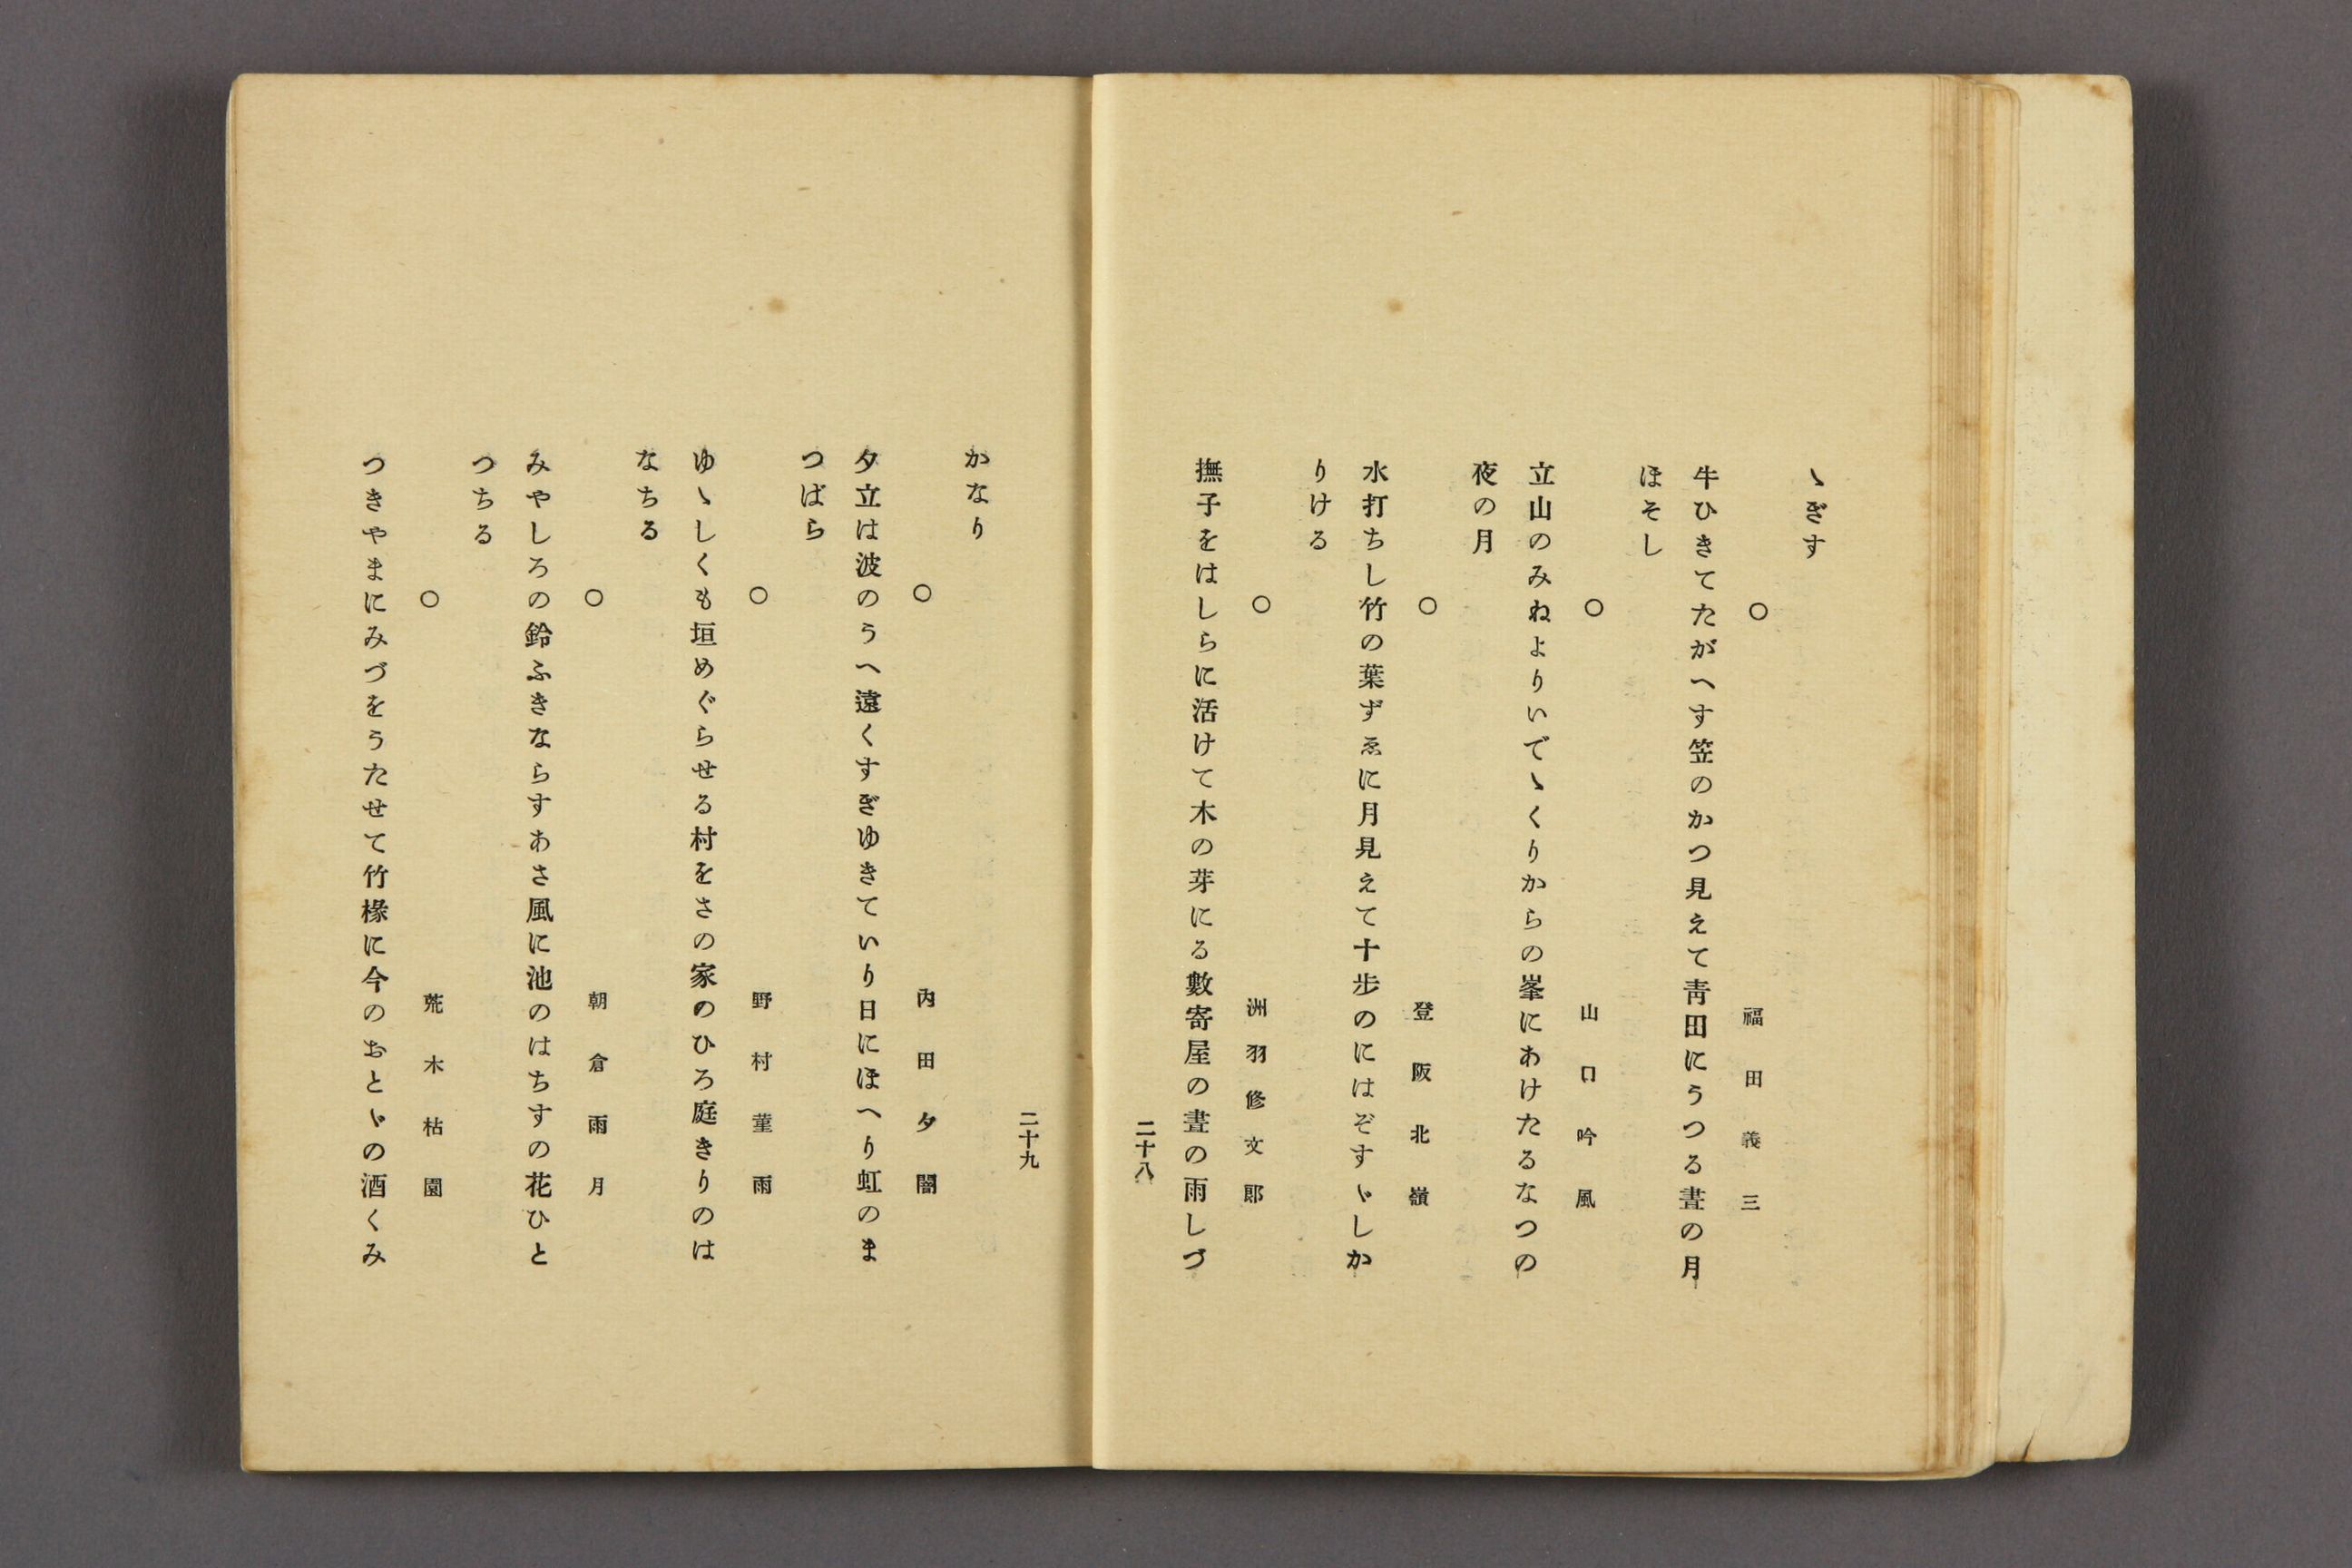 ゝぎす
○　福田義三
牛ひきてたがへす笠のかつ見えて靑田にうつる晝の月
ほそし
○　山口吟風
立山のみねよりいでゝくりからの峯にあけたるなつの
夜の月
○　登阪北嶺
水打ちし竹の葉ずゑに月見えて十歩のにはぞすゞしか
りける
○　洲羽修文郞
撫子をはしらに活けて木の芽にる數寄屋の晝の雨しづ
二十八
二十九
かなり
○　内田夕闇
夕立は波のうへ遠くすぎゆきていり日にほへり虹のま
つばら
○　野村菫雨
ゆゝしくも垣めぐらせる村をさの家のひろ庭きりのは
なちる
○　朝倉雨月
みやしろの鈴ふきならすあさ風に池のはちすの花ひと
つちる
○　荒木枯園
つきやまにみづをうたせて竹椽に今のおとゞの酒くみ